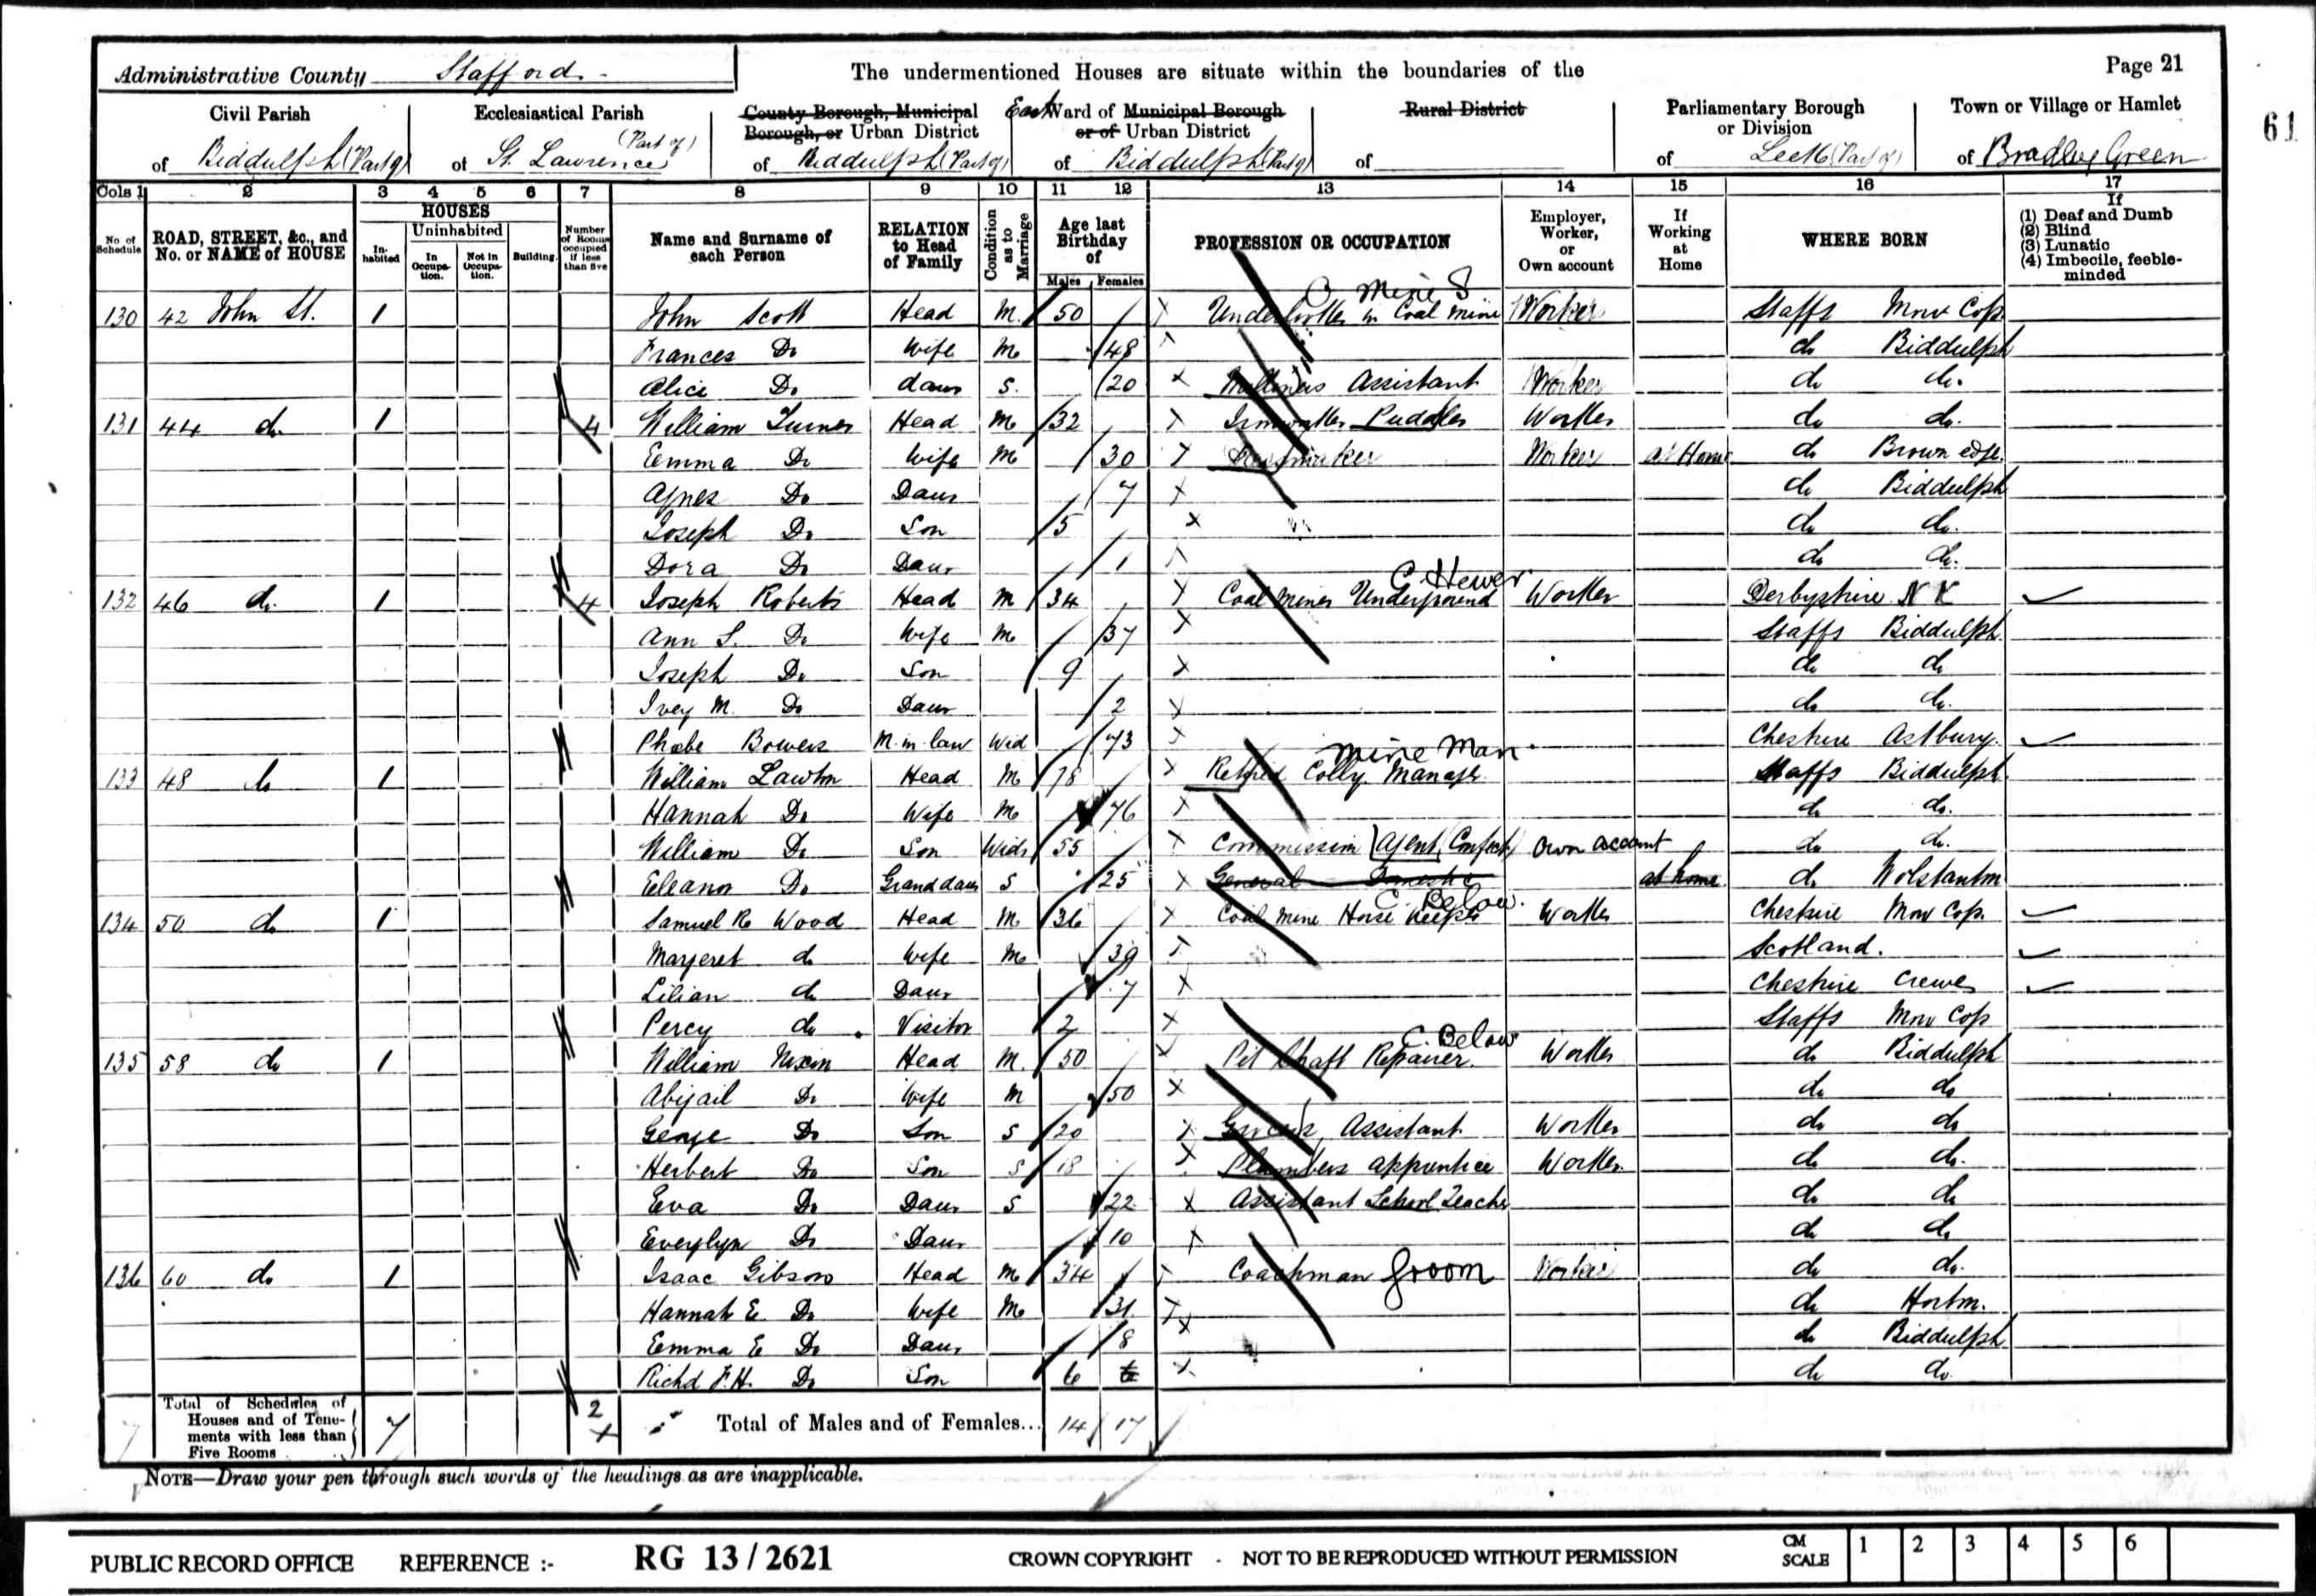 Administrative County Stafford
The undermentioned Houses are situate within the boundaries of the
Page 21
61
Civil Parish of Biddulph (Part of)
Ecclesiastical Parish of St. Lawrence (Part of)
County Borough, Municipal Borough, or Urban District of Biddulph (Part of)
East Ward of Municipal Borough or of Urban District of Biddulph (Part of)
Rural District of
Parliamentary Borough or Division of Leek (Part of)
Town or Village or Hamlet of Bradley Green
Cols 1 2 3 4 5 6 7 8 9 10 11 12 13 14 15 16 17
No of Schedule
ROAD, STREET, &c., and No. or NAME of HOUSE
HOUSES
Inhabited
Uninhabited
In Occupation.
Not in Occupation.
Building.
Number of Rooms occupied if less than five
Name and Surname of each Person
RELATION to Head of Family
Condition as to Marriage
Age last Birthday of
Males Females
PROFESSION OR OCCUPATION
Employer, Worker, or Own account
If Working at Home
WHERE BORN
If
(1) Deaf and Dumb
(2) Blind
(3) Lunatic
(4) Imbecile, feeble-minded
130 42 John St. 1 John Scott Head M. 50 X in Coal mine Mine S Worker Staffs Mow Cop
Frances Do Wife M 48 X do Biddulph
Alice Do daur S. 20 X Milliners Assistant Worker do do.
131 44 do. 1 4 William Turner Head M 32 X Ironworks Puddler Worker do do.
Emma Do Wife M 30 X Dressmaker Worker at Home do Brown edge.
Agnes Do Daur 7 X do Biddulph
Joseph Do Son 5 X do do.
Dora Do Daur 1 X do do.
132 46 do. 1 4 Joseph Roberts Head M 34 X Coal miner Underground C. Hewer Worker Derbyshire N K
Ann S. Do Wife M 37 X Staffs Biddulph.
Joseph Do Son 9 X do do
Ivey M. Do Daur 2 X do do.
Phoebe Bowers M-in-law Wid 73 X Cheshire Astbury.
133 48 do 1 William Lawton Head M 78 X Retired Colly Manager Mine Man. Staffs Biddulph.
Hannah Do Wife M 76 X do do.
William Do Son Widr 55 X Commission Agent (Confect) Own account do do.
Eleanor Do Granddaur S 25 X General Domestic at home do Wolstanton
134 50 do 1 Samuel R Wood Head M. 36 X Coal mine Horse keeper C. Below. Worker Cheshire Mow Cop.
Margeret do Wife M 39 X Scotland.
Lilian do Daur 7 X Cheshire Crewe
Percy do Visitor 2 X Staffs Mow Cop
135 58 do 1 William Nixon Head M. 50 X Pit Shaft Repairer. C. Below Worker do Biddulph
Abigail Do Wife M 50 X do do
George Do Son S 20 X Grocers Assistant Worker do do
Herbert Do Son S 18 X Plumbers apprentice Worker. do do.
Eva Do Daur S 22 X Assistant School Teacher do do
Everylyn Do Daur 10 X do do
136 60 do 1 Isaac Gibson Head M 34 X Coachman Groom Worker do do.
Hannah E. Do Wife M 31 X do Horton.
Emma E Do Daur 8 X do Biddulph
Richd F.H. Do Son 6 X do do
Total of Schedules of Houses and of Tenements with less than Five Rooms 7 2
Total of Males and of Females... 14 17
NOTE—Draw your pen through such words of the headings as are inapplicable.
PUBLIC RECORD OFFICE REFERENCE :- RG 13/2621 CROWN COPYRIGHT - NOT TO BE REPRODUCED WITHOUT PERMISSION CM SCALE 1 2 3 4 5 6